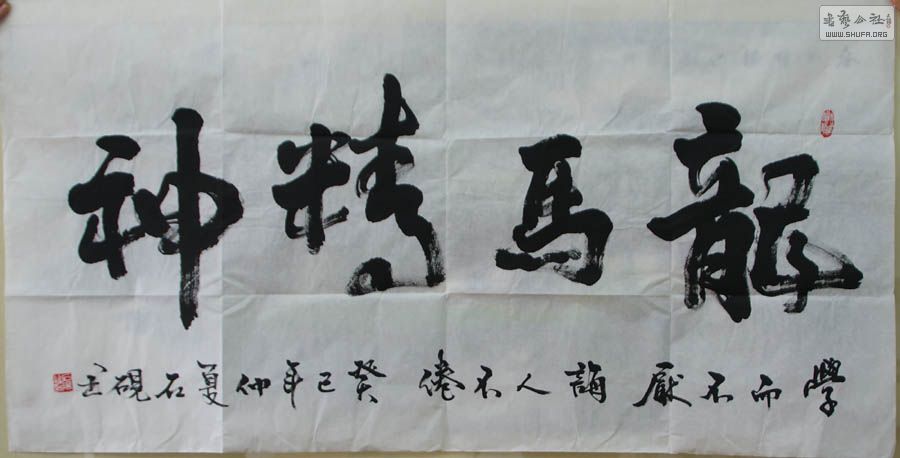 龍馬精神
學而不厭 誨人不倦 癸巳年仲夏石硯
书艺公社
WWW.SHUFA.ORG